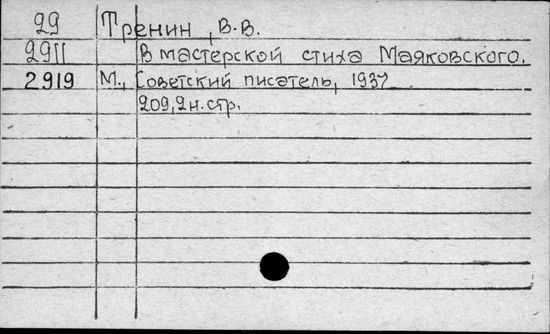 29 Тренин, В.В.
2911 В мастерской стиха Маяковского.
2919 М., Советский писатель, 1937
209,2н.стр.